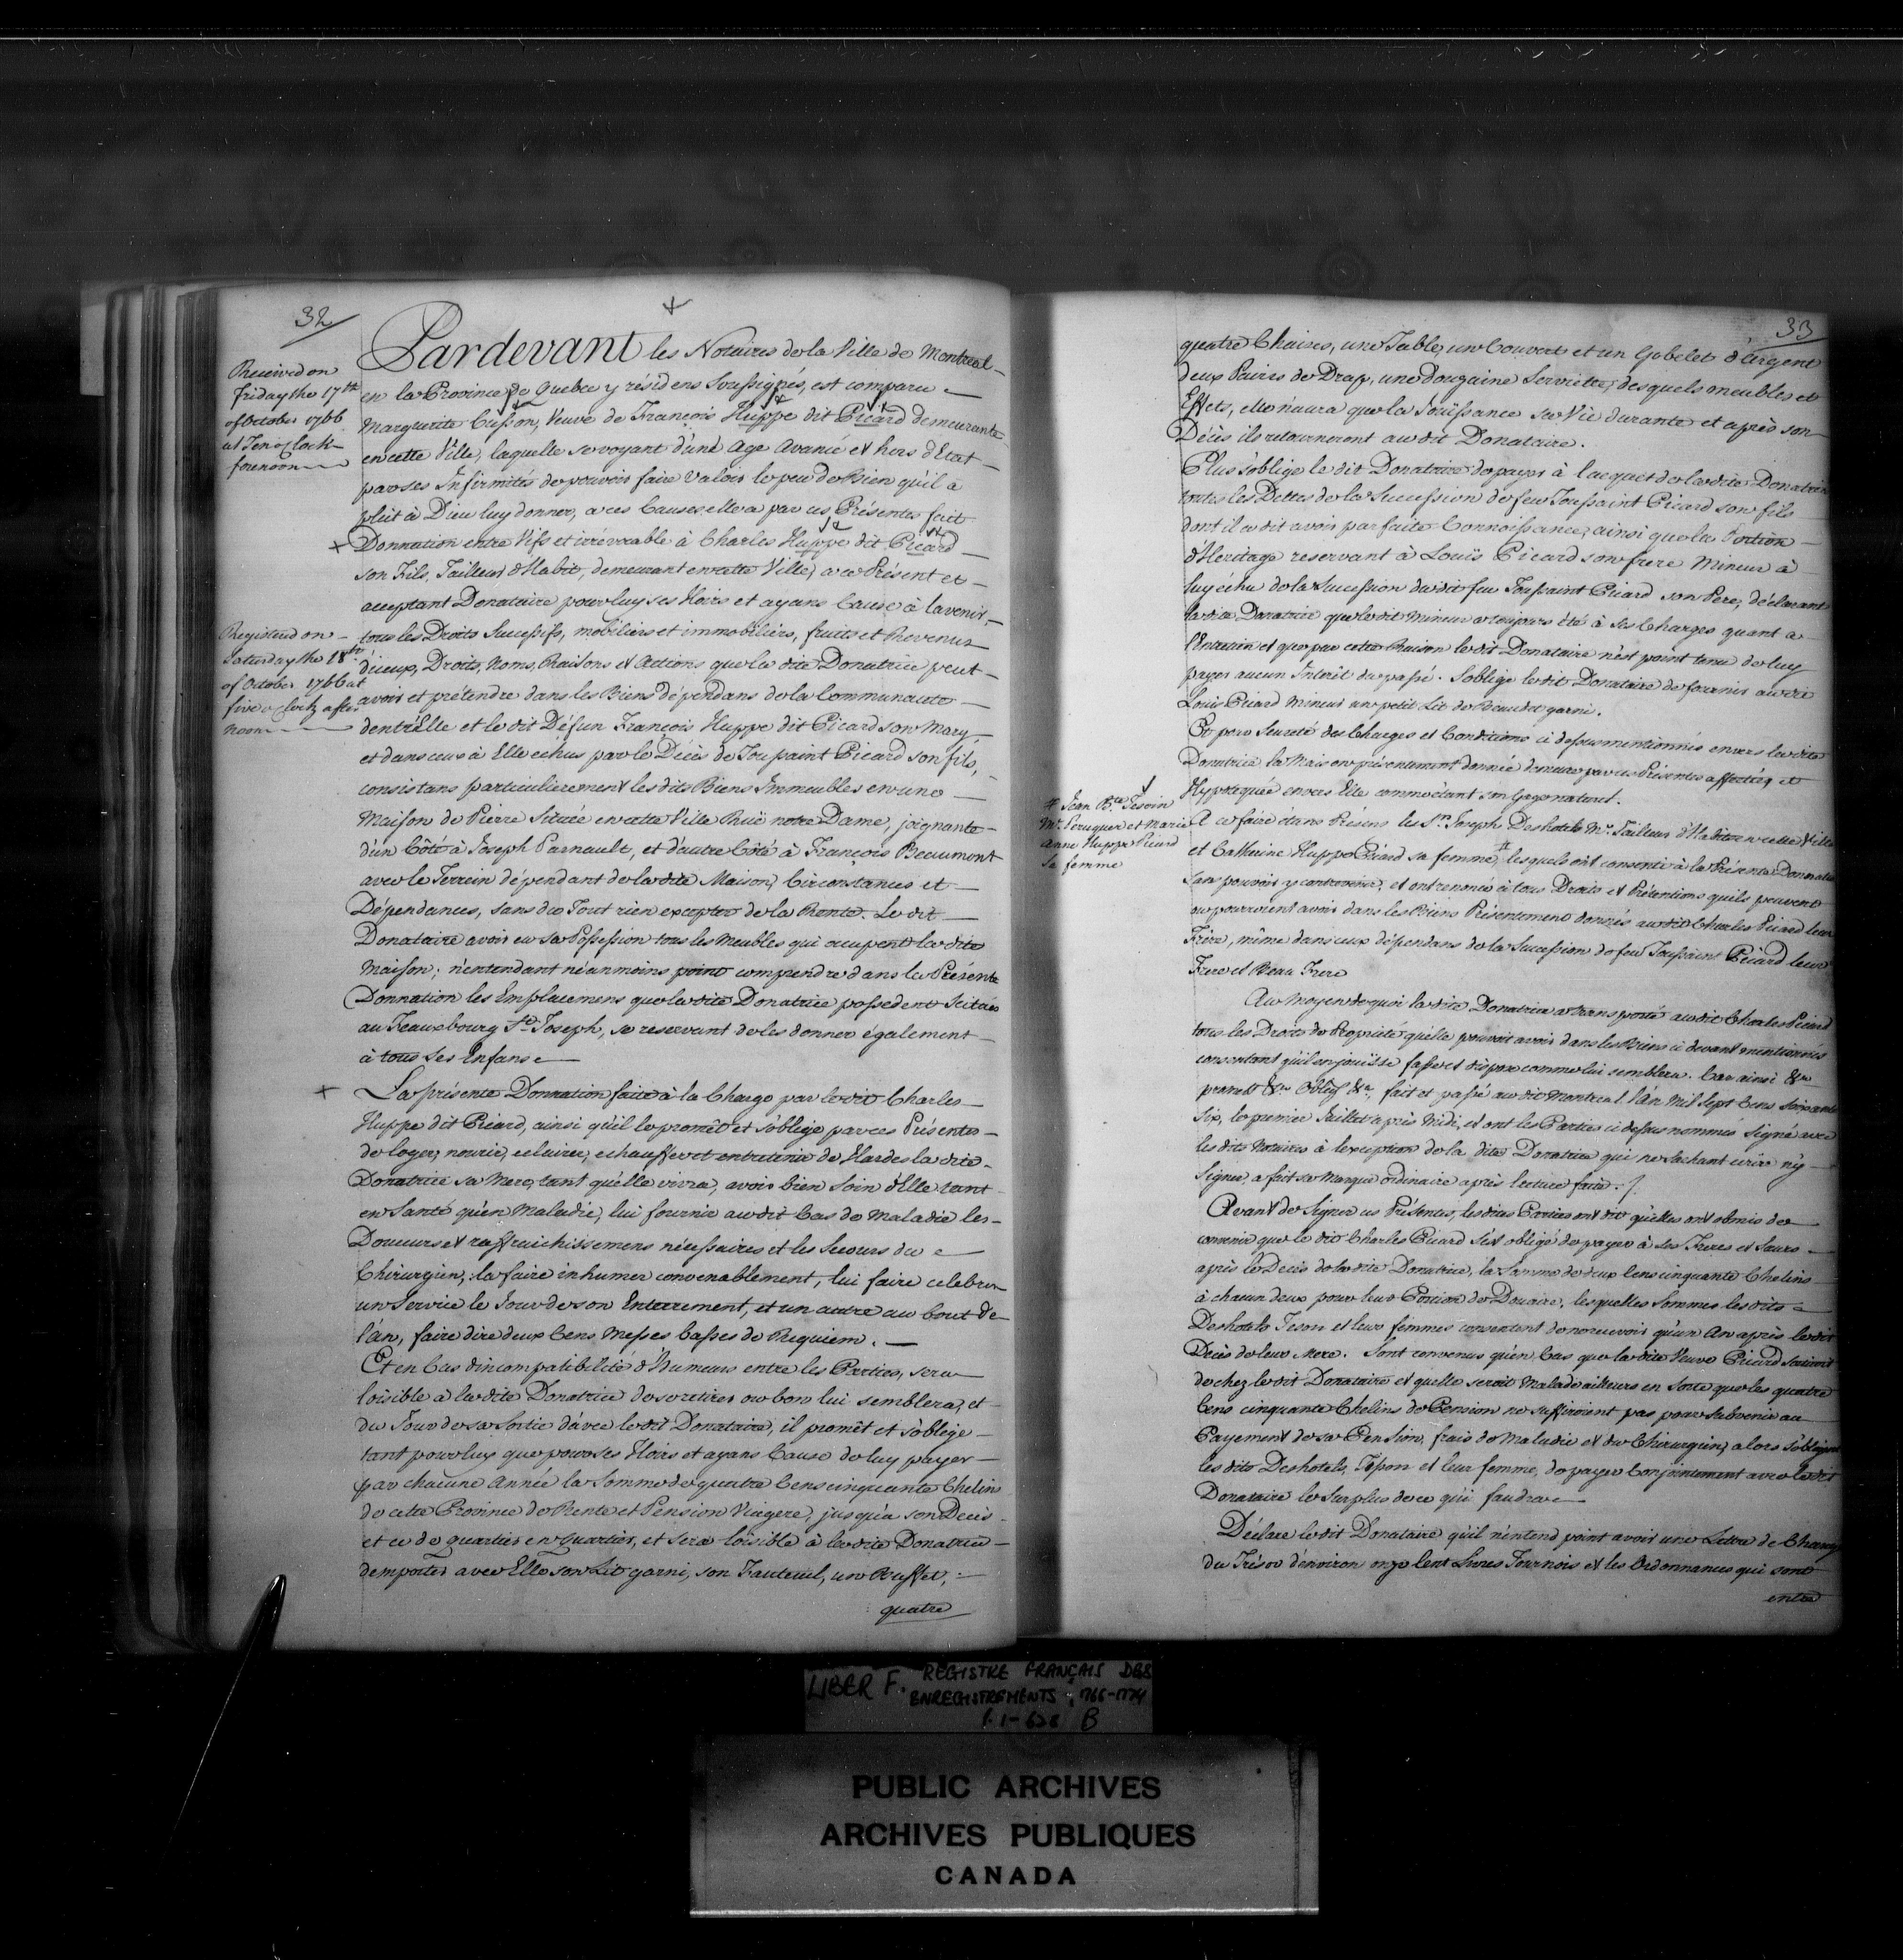 32
Received on
friday the 17th
of October 1766
at Ten o Clock
forenoon
Registered on
Saturday the 18th
of October 1766 at
five o Clock after
noon
Pardevant les Notaires de la Ville de Montreal
en la Province de Quebec y résidens Soussignés, est comparu
Marguerite Cusson, Veuve de François Huppe dit Picard demeurante
en cette Ville, laquelle se voyant d'une Age Avancé et hors d'Etat
par ses Infirmités de pouvoir faire valoir le peu de Bien qu'il a
plût à Dieu luy donner, a ces Causes elle a par ces Présentes fait
Donnation entre Vifs et irrévocable à Charles Huppe dit Picard
son Fils, Tailleur d'Habit, demeurant en cette Ville, a ce Présent et
acceptant Donataire pour luy ses Hoirs et ayans Cause à l'avenir,
tous les Droits Successifs, mobiliers et immobiliers, fruits et Revenus
d'iceux, Droits, Noms, Raisons et Actions que la dite Donatrice peut
avoir et prétendre dans les Biens dépendans de la Communauté
d'entr'Elle et le dit Défun François Huppe dit Picard son Mary,
et dans ceux à Elle échus par le Décès de Toussaint Picard son fils,
consistans particulierement les dits Biens Immeubles en une
Maison de Pierre Située en cette Ville Ruë notre Dame, joignante
d'un Côté à Joseph Parnault, et d'autre Côté à François Beaumont
avec le Terrein dépendant de la dite Maison, Circonstances et
Dépendances, sans du Tout rien excepter de la Rente. Le dit
Donataire avoir en sa Possession tous les Meubles qui occupent la dite
Maison; n'entendant néanmoins point comprendre dans la Présente
Donnation les Emplacemens que la dite Donatrice possedent Scitués
au Feauxbourg St. Joseph, se reservant de les donner également
à tous ses Enfans
La présente Donnation faite à la Charge par le dit Charles
Huppe dit Picard, ainsi qu'il le promêt et s'oblige par ces Présentes
de loger, nourir, eclairer, echauffer et entretenir de Hardes la dite
Donatrice sa Mere, tant qu'elle vivra, avoir bien Soin d'Elle tant
en Santé qu'en Maladie, lui fournir au dit Cas de Maladie les
Douceurs et raffraichissemens nécessaires et les Secours du
Chirurgien, la faire inhumer convenablement, lui faire celebrer
un Service le Jour de son Enterrement, et un autre au bout de
l'án, faire dire deux Cens Messes basses de Requiem.
Et en Cas d'incompatibilité d'Humeurs entre les Parties, sera
loisible à la dite Donatrice de se retirer ou bon lui semblera, et
du Jour de sa Sortie d'avec le dit Donataire, il promêt et s'oblige
tant pour luy que pour ses Hoirs et ayans Cause de luy payer
par chacune Année la Somme de quatre Cens cinquante Chelins
de cette Province de Rente et Pension Viagere, jusqu'a son Decès
et ce de quartier en Quartier, et sera loisible à la dite Donatrice
d'emporter avec Elle son Lit garni, son Fauteuil, un Buffet,
quatre
33
quatre Chaises, une Table, un Couvert et un Gobelet d'Argent
deux Paires de Drap, une douzaine Serviette, desquels meubles et
Effets, elle n'aura que la Jouïssance sa Vie durante et après son
Décès ils retourneront au dit Donataire.
Plus s'oblige le dit Donataire de payer à l'acquet de la dite Donatrice
toutes les Dettes de la Succession de feu Toussaint Picard son fils
dont il a dit avoir parfaite Connoissance, ainsi que la Portion
d'Heritage reservant à Louis Picard son frere Mineur à
luy échu de la Succession du dit feu Toussaint Picard son Pere, déclarant
la dite Donatrice que le dit Mineur a toujours été à ses Charges quant a
l'Entretien et que par cette Raison le dit Donataire n'est point tenu de luy
payer aucun Intérêt du passé. S'oblige le dit Donataire de fournir au dit
Louis Picard Mineur un petit Lit de Beaudet garni.
Et pour Seureté des Charges et Conditions ci dessus mentionnés envers la dite
Donatrice la Maison présentement donnée demeure par ces Présentes affectée, et
Hypotequée envers Elle comme étant son Gage naturel.
# Jean Bte. Tesoin
Me. Peruquier et Marie
Anne Huppe Picard
sa femme
A ce faire étans Présens les Srs. Joseph Deshotels Me. Tailleur d'Habits en cette Ville
et Catherine Huppe Picard sa femme, # lesquels ont consenti à la Présente Donnation
sans pouvoir y contrevenir, et ont renoncé à tous Droits et Prétentions qu'ils peuvent
ou pourroient avoir dans les Biens Présentement donnés au dit Charles Picard leur
Frère, même dans ceux dépendans de la Succession de feu Toussaint Picard leur
Frere et Beau Frere
Au Moyen de quoi la dite Donatrice a transporté au dit Charles Picard
tous les Droits de Propriété qu'elle pouvoit avoir dans les Biens ci devant mentionnés
consentant qu'il en jouïsse fasse et dispose comme lui semblera. Car ainsi &a
promett &a Oblig &a, fait et passé au dit Montreal l'án Mil Sept Cens Soixante
Six, le premier Juillet après Midi, et ont les Parties ci dessus nommés Signé avec
les dits Notaires à l'exception de la dite Donatrice qui ne Sachant ecrire n'y
Signer, a fait sa Marque ordinaire après lecture faite./.
Avant de Signer ces Présentes, les dites Parties ont dit qu'elles ont obmis de
convenir que le dit Charles Picard s'est obligé de payer à ses Freres et Sœurs
après le Decès de la dite Donatrice, la Somme de deux Cens cinquante Chelins
à chacun d'eux pour leur Portion de Douaire, lesquelles Sommes les dits
Deshotels Teson et leurs femmes consentent de ne recevoir qu'un An après le dit
Decès de leur Mere. Sont convenus qu'en Cas que la dite Veuve Picard Sortiroit
de chez le dit Donataire et quelle seroit Malade ailleurs en Sorte que les quatre
Cens cinquante Chelins de Pension ne suffiroient pas pour Subvenir au
Payement de sa Pension, frais de Maladie et du Chirurgien, alors s'obligent
les dits Deshotels, Tesson et leur femme, de payer Conjointement avec le dit
Donataire le Surplus de ce qui faudra
Déclare le dit Donataire qu'il n'entend point avoir une Lettre de Change
du Trésor d'environ onze Cent Livres Tournois et les Ordonnances qui sont
entre
LIBER F. REGISTRE FRANÇAIS DES
ENREGISTREMENTS, 1766-1774
f. 1-626 B
PUBLIC ARCHIVES
ARCHIVES PUBLIQUES
CANADA